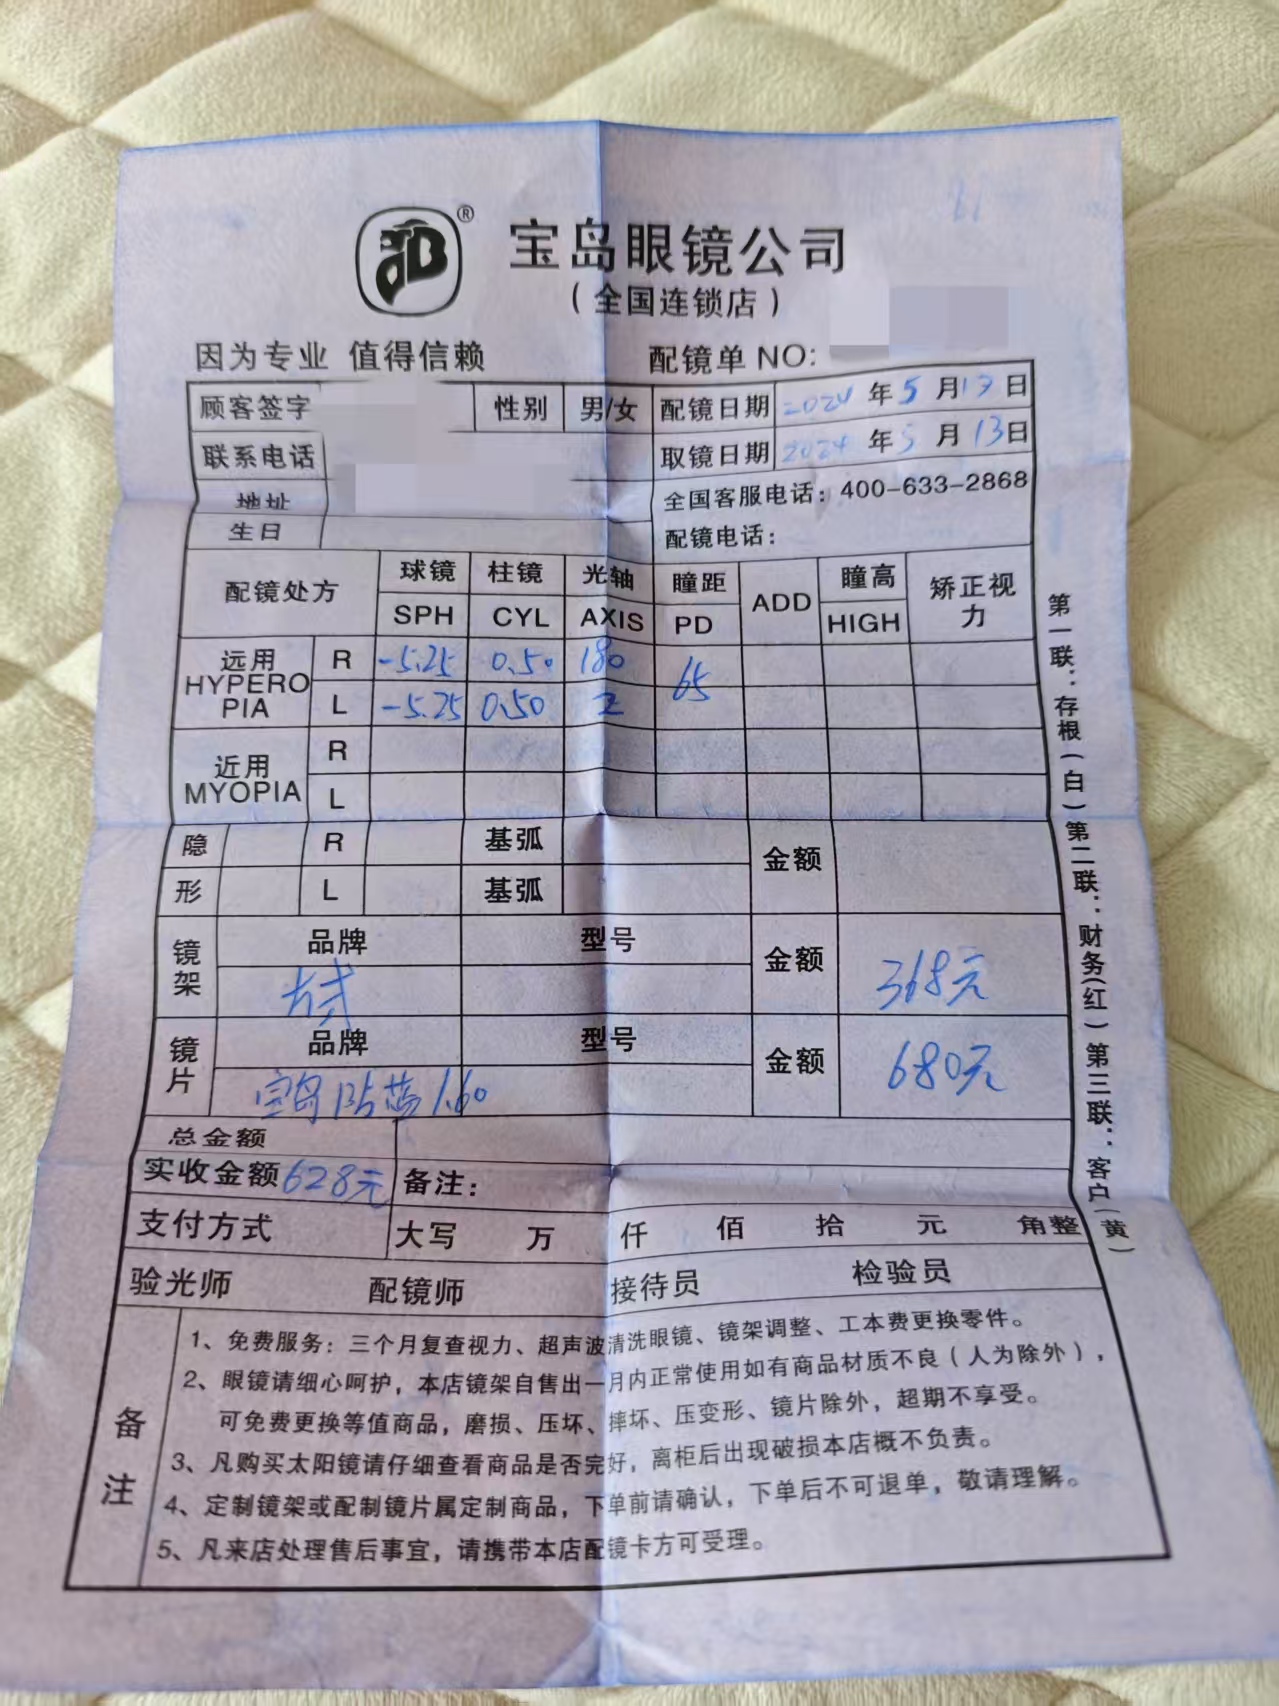 宝岛眼镜公司
（全国连锁店）
因为专业 值得信赖 配镜单 NO:
顾客签字 性别 男/女 配镜日期 2024 年 5 月 13 日
联系电话 取镜日期 2024 年 5 月 13 日
地址 全国客服电话：400-633-2868
生日 配镜电话：
配镜处方 球镜 柱镜 光轴 瞳距 ADD 瞳高 矫正视力
SPH CYL AXIS PD HIGH
远用 HYPEROPIA R -5.25 0.50 180 65
L -5.25 0.50 2
近用 MYOPIA R
L
隐形 R 基弧 金额
L 基弧
镜架 品牌 型号 金额 368元
方式
镜片 品牌 型号 金额 680元
宝岛防蓝1.60
总金额
实收金额 628元 备注：
支付方式 大写 万 仟 佰 拾 元 角整
验光师 配镜师 接待员 检验员
备注
1、免费服务：三个月复查视力、超声波清洗眼镜、镜架调整、工本费更换零件。
2、眼镜请细心呵护，本店镜架自售出一月内正常使用如有商品材质不良（人为除外），
可免费更换等值商品，磨损、压坏、摔坏、压变形、镜片除外，超期不享受。
3、凡购买太阳镜请仔细查看商品是否完好，离柜后出现破损本店概不负责。
4、定制镜架或配制镜片属定制商品，下单前请确认，下单后不可退单，敬请理解。
5、凡来店处理售后事宜，请携带本店配镜卡方可受理。
第一联：存根（白）第二联：财务（红）第三联：客户（黄）